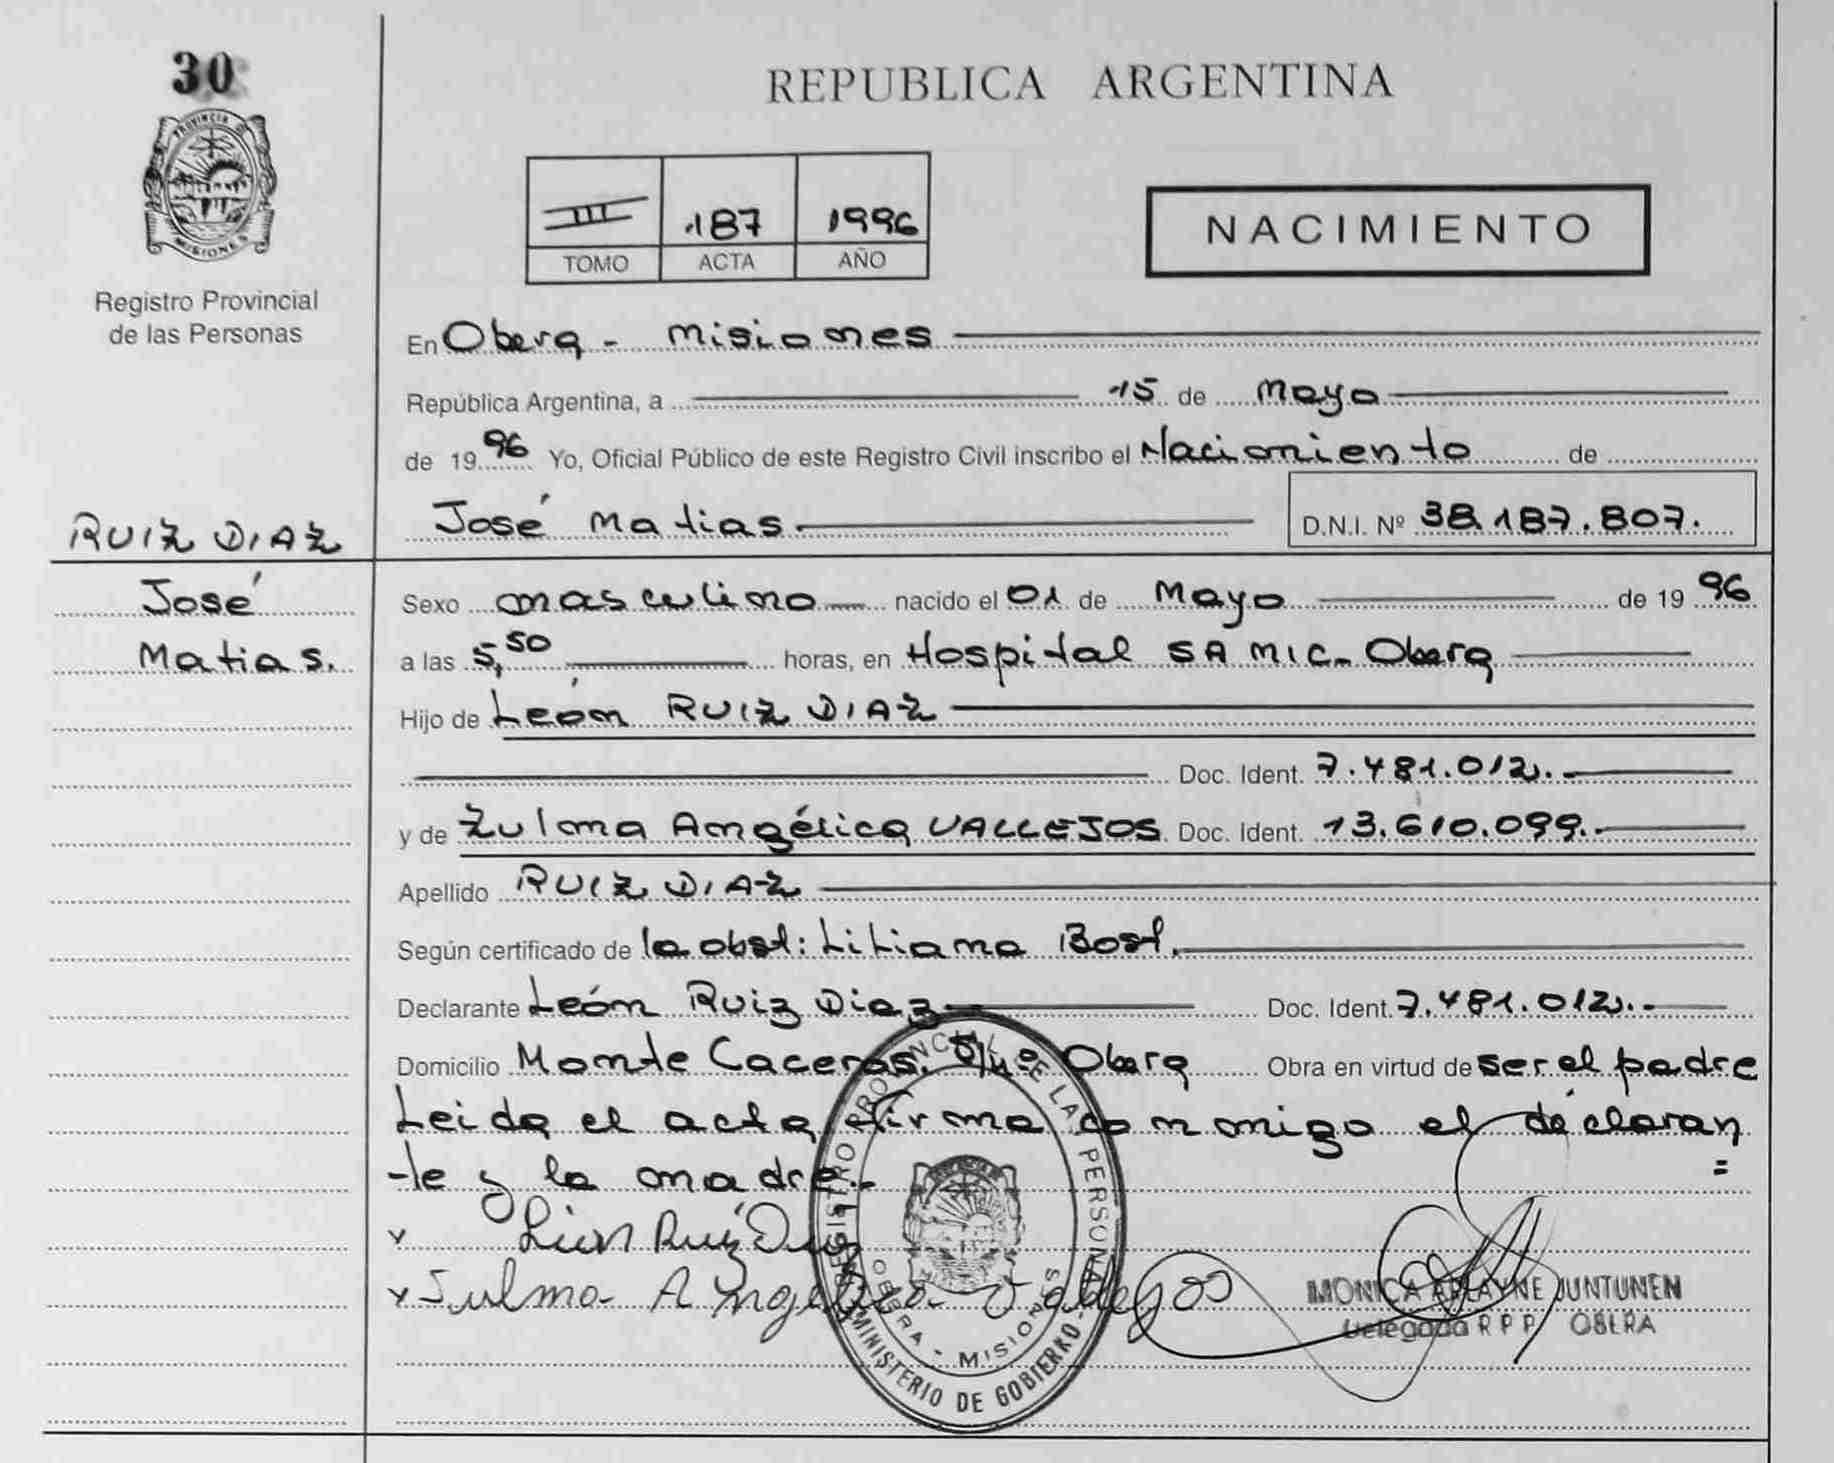 30
PROVINCIA D
MISIONES
Registro Provincial
de las Personas
RUIZ DIAZ
José
Matias.
REPUBLICA ARGENTINA
III 187 1996
TOMO ACTA AÑO
NACIMIENTO
En Obera - Misiones
República Argentina, a 15 de Mayo
de 1996 Yo, Oficial Público de este Registro Civil inscribo el Nacimiento de
José Matias D.N.I. Nº 38.187.807.
Sexo masculino nacido el 01 de Mayo de 1996
a las 5,50 horas, en Hospital SAMIC- Obera
Hijo de León RUIZ DIAZ
Doc. Ident. 7.481.012.-
y de Zulma Angélica VALLEJOS Doc. Ident. 13.610.099.-
Apellido RUIZ DIAZ
Según certificado de la obst: Liliana Bost.
Declarante León Ruiz Diaz Doc. Ident. 7.481.012.-
Domicilio Monte Caceros. Obera Obra en virtud de ser el padre
Leida el acta firma conmigo el declaran
-te y la madre.-
x León Ruíz Diaz
x Sulma Angelica Vallejos
MONICA JUNTUNEN
Delegada R P P OBERA
REGISTRO PROVINCIAL DE LAS PERSONAS
OBERA - MISIONES
MINISTERIO DE GOBIERNO